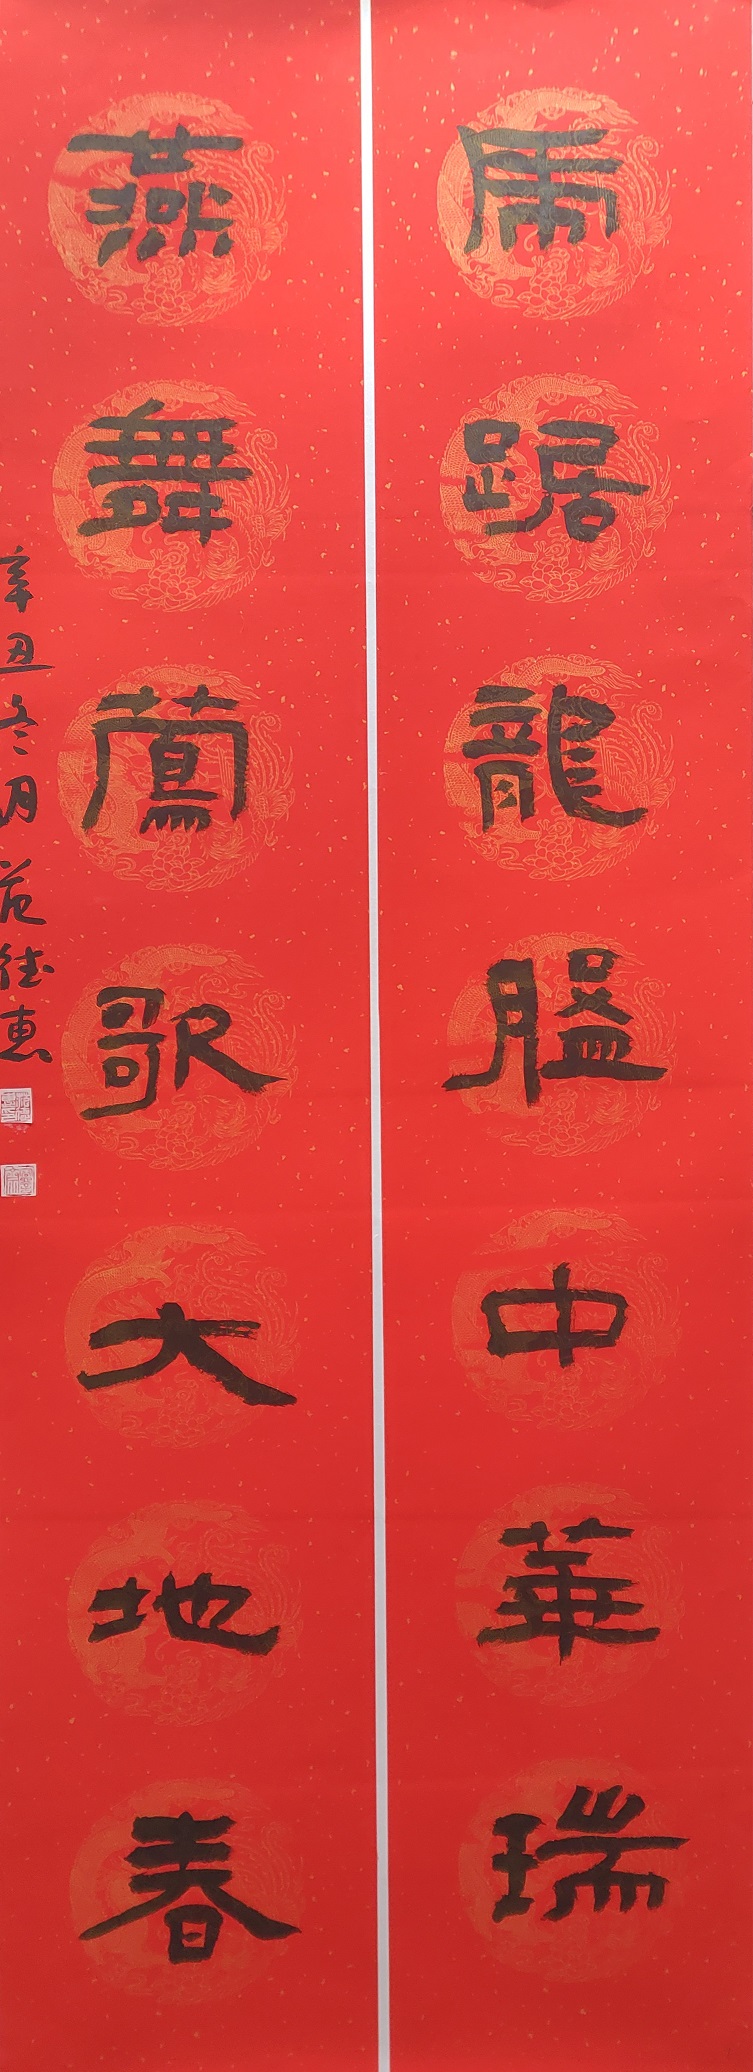 虎踞龍盤中華瑞
燕舞鶯歌大地春
辛丑冬月范德惠